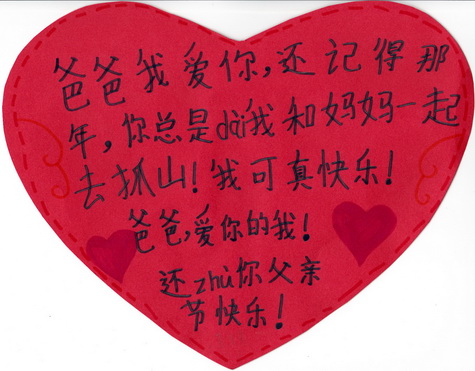 爸爸我爱你,还记得那
年,你总是dài我和妈妈一起
去抓山!我可真快乐!
爸爸,爱你的我!
还zhù你父亲
节快乐!